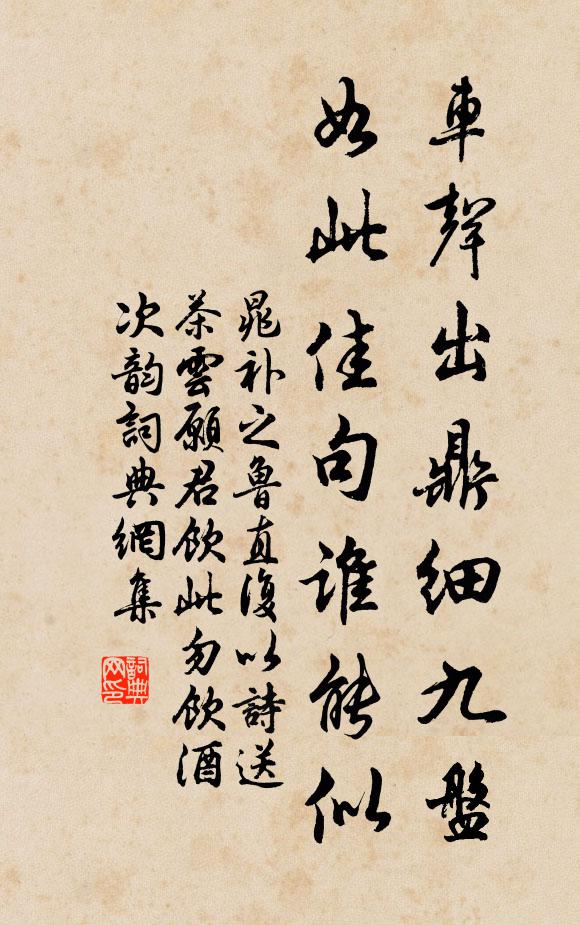 車聲出鼎細九盤
如此佳句誰能似
晁補之魯直復以詩送
茶雲願君飲此勿飲酒
次韵詞典網集
詞典
网印